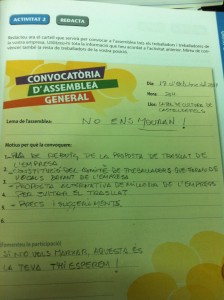 ACTIVITAT 2 REDACTA
Redacteu ara el cartell que servirà per convocar a l'assemblea tots els treballadors i treballadores de
la vostra empresa. Utilitzeu-hi tota la informació que heu acordat a l'activitat anterior. Mireu de con-
vèncer també la resta de treballadors de la vostra posició.
CONVOCATÒRIA
D'ASSEMBLEA
GENERAL
Dia:
Hora:
Lloc: CASAL DE CULTURA DE
CASTELLDEFELS
Lema de l'assemblea: NO ENS MOURAN!
Motius per què la convoquem:
1. DE LA PROPOSTA DE TRASLLAT DE
L'EMPRESA
2. CONSTITUCIÓ DEL COMITÈ DE TREBALLADORS QUE FARAN DE
VOCALS DAVANT DE L'EMPRESA
3. PROPOSTA ALTERNATIVA DE MILLORA DE L'EMPRESA
PER EVITAR EL TRASLLAT
4. PRECS I SUGGERIMENTS
5.
6.
Demaneu la participació:
SI NO VOLS MARXAR, AQUESTA ÉS
LA TEVA. T'HI ESPEREM!